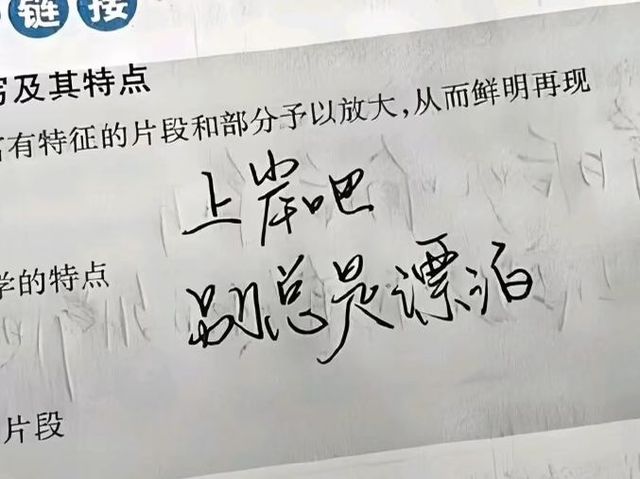 链接
及其特点
有特征的片段和部分予以放大，从而鲜明再现
上岸吧
学的特点
别总是漂泊
片段